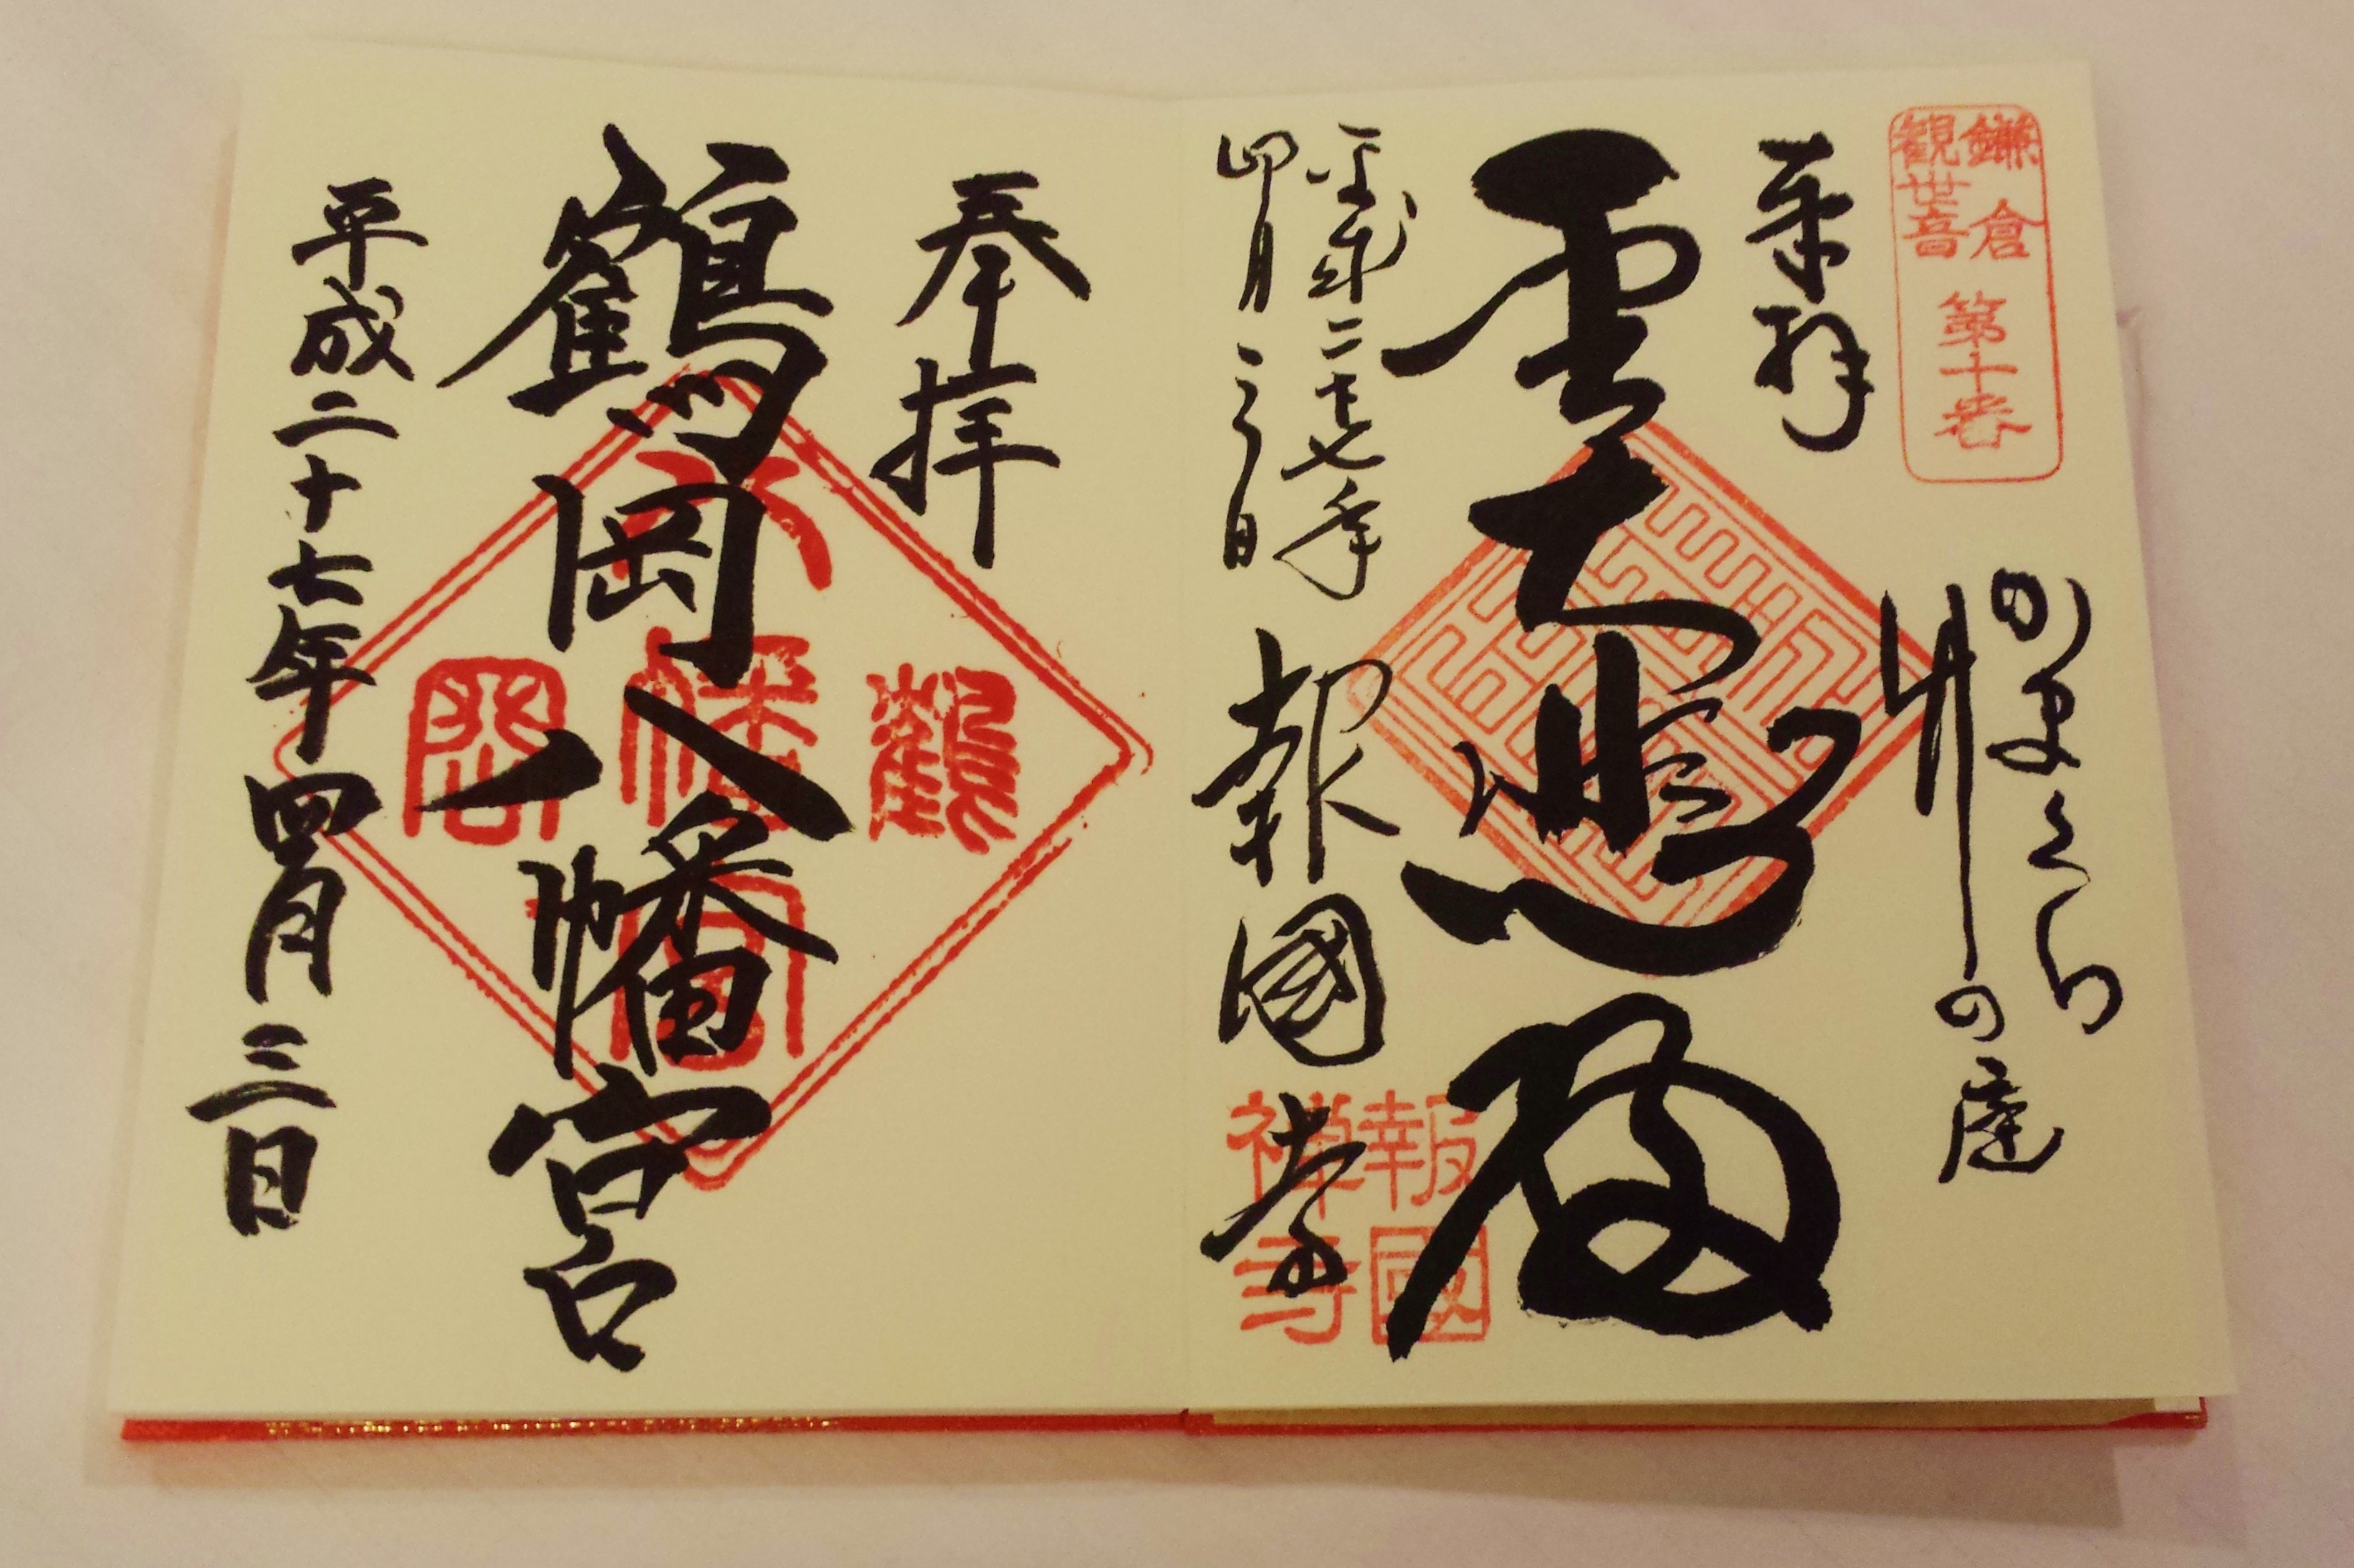 鎌倉
観世音
第十番
かまくら
竹の庭
奉拝
大悲
平成二十七年
四月三日
報國寺
報國
禅寺
奉拝
鶴岡八幡宮
鶴岡八幡宮
平成二十七年四月三日